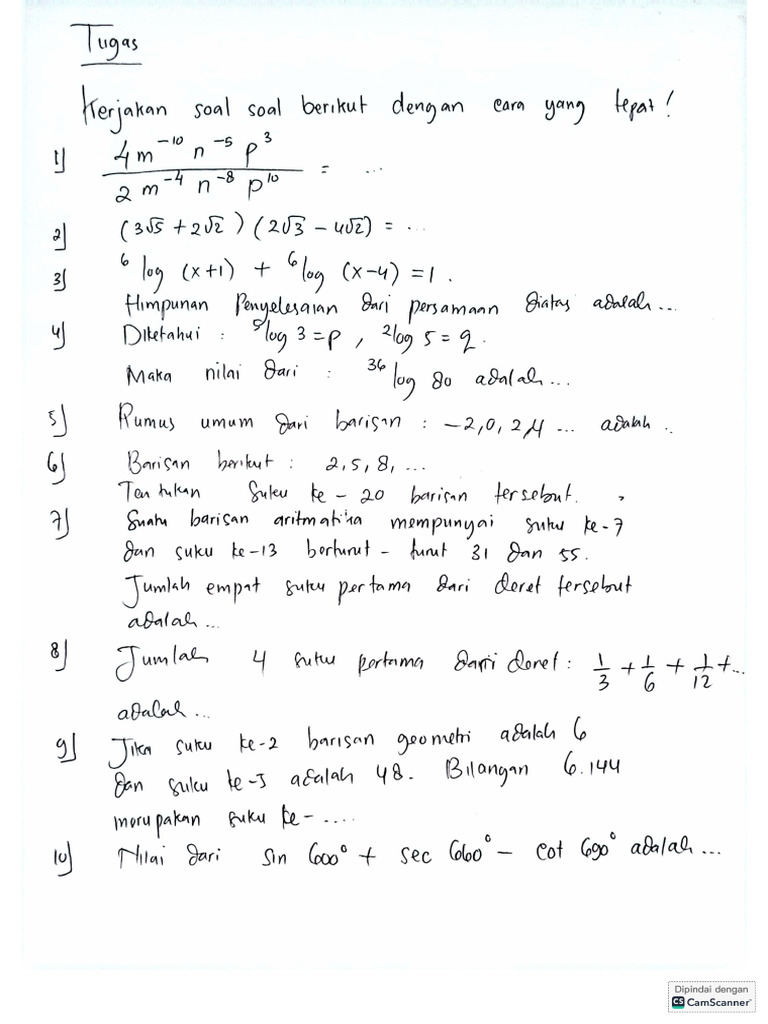 Tugas
Kerjakan soal soal berikut dengan cara yang tepat!
1] 4m⁻¹⁰ n⁻⁵ p³ / 2 m⁻⁴ n⁻⁸ p¹⁰ = ...
2] (3√5 + 2√2) (2√3 – 4√2) = ...
3] ⁶log (x+1) + ⁶log (x-4) = 1.
Himpunan Penyelesaian dari persamaan diatas adalah...
4] Diketahui : ⁵log 3 = p , ²log 5 = q.
Maka nilai dari : ³⁶log 80 adalah...
5] Rumus umum dari barisan : -2, 0, 2, 4 ... adalah ..
6] Barisan berikut : 2, 5, 8, ...
Tentukan Suku ke - 20 barisan tersebut.
7] Suatu barisan aritmatika mempunyai suku ke-7
dan suku ke-13 berturut - turut 31 dan 55.
Jumlah empat suku pertama dari deret tersebut
adalah...
8] Jumlah 4 suku pertama dari deret : 1/3 + 1/6 + 1/12 + ...
adalah...
9] Jika suku ke-2 barisan geometri adalah 6
dan suku ke-5 adalah 48. Bilangan 6.144
merupakan suku ke- ....
10] Nilai dari sin 600° + sec 660° – cot 690° adalah ...
Dipindai dengan
CS CamScanner